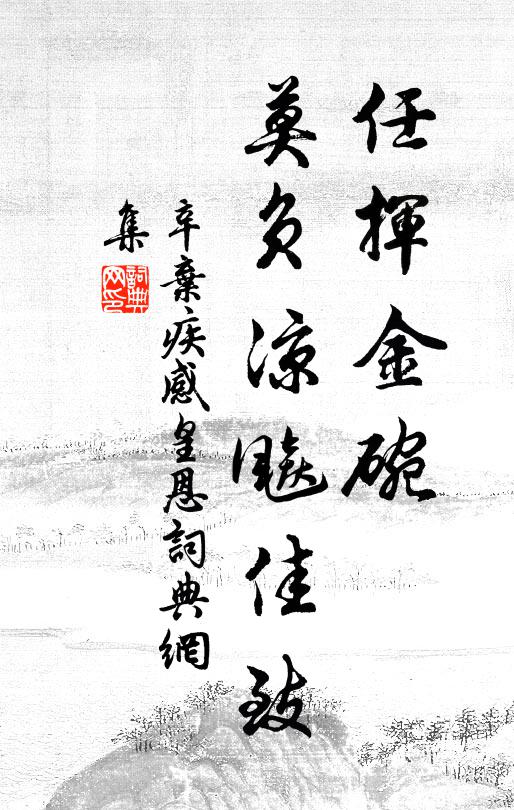 任揮金碗
莫負涼飈佳致
辛棄疾感皇恩詞典網
集
詞典网印